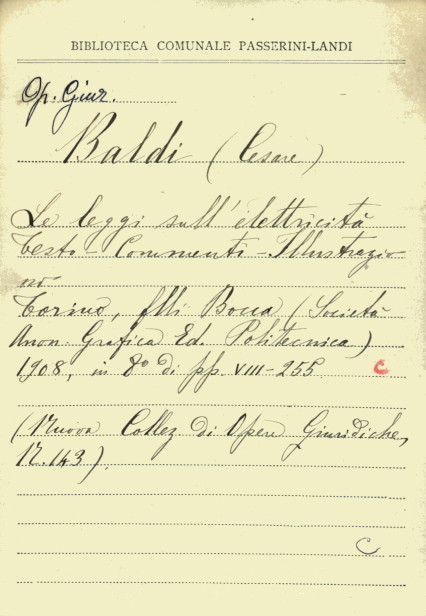 BIBLIOTECA COMUNALE PASSERINI-LANDI
Op. Giur.
Baldi (Cesare)
Le leggi sull'elettricità
Testo - Commenti - Illustrazio
ni
Torino, f.lli Bocca (Società
Anon. Grafica Ed. Politecnica)
1908, in 8º di pp. VIII-255 C
(Nuova Collez di Opere Giuridiche,
N. 143).
C